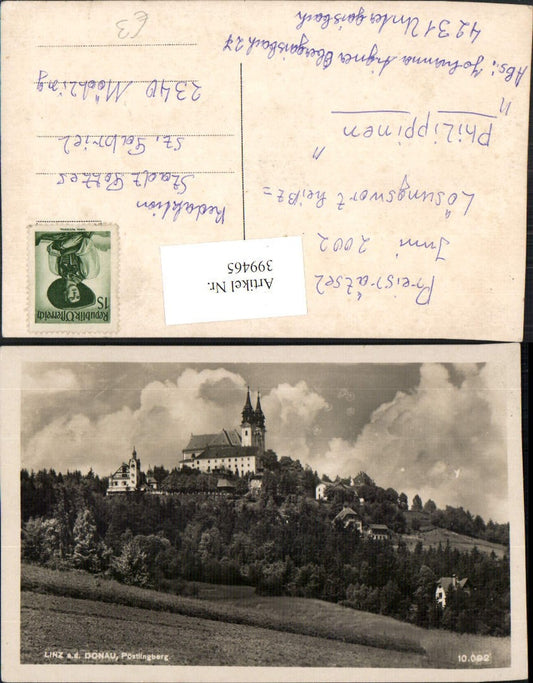 Preisrätsel
Juni 2002
Lösungswort heißt =
" PHILIPPINEN "
Abs: Johanna Aigner Obergaisbach 27
4231 Untergaisbach
Redaktion
Stadt Gottes
St. Gabriel
2340 Mödling
£3
1S
Republik Österreich
Artikel Nr.
399465
LINZ a.d. DONAU, Pöstlingberg
10.092